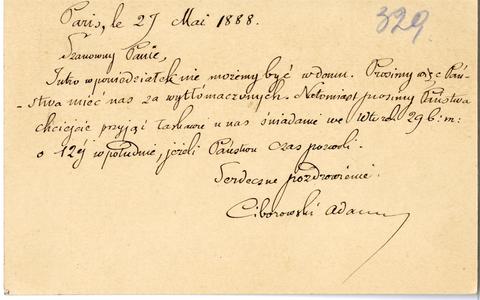 Paris, le 27 Mai 1888.
329.
Szanowny Panie,
Jutro w poniedziałek nie możemy być w domu. Prosimy więc Pań-
-stwa mieć nas za wytłómaczonych. Natomiast prosimy Państwa
chciejcie przyjąć łaskawie u nas śniadanie we Wtorek 29 b: m:
o 12ej w południe, jeżeli Państwu czas pozwoli.
Serdeczne pozdrowienie.
Ciborowski Adam